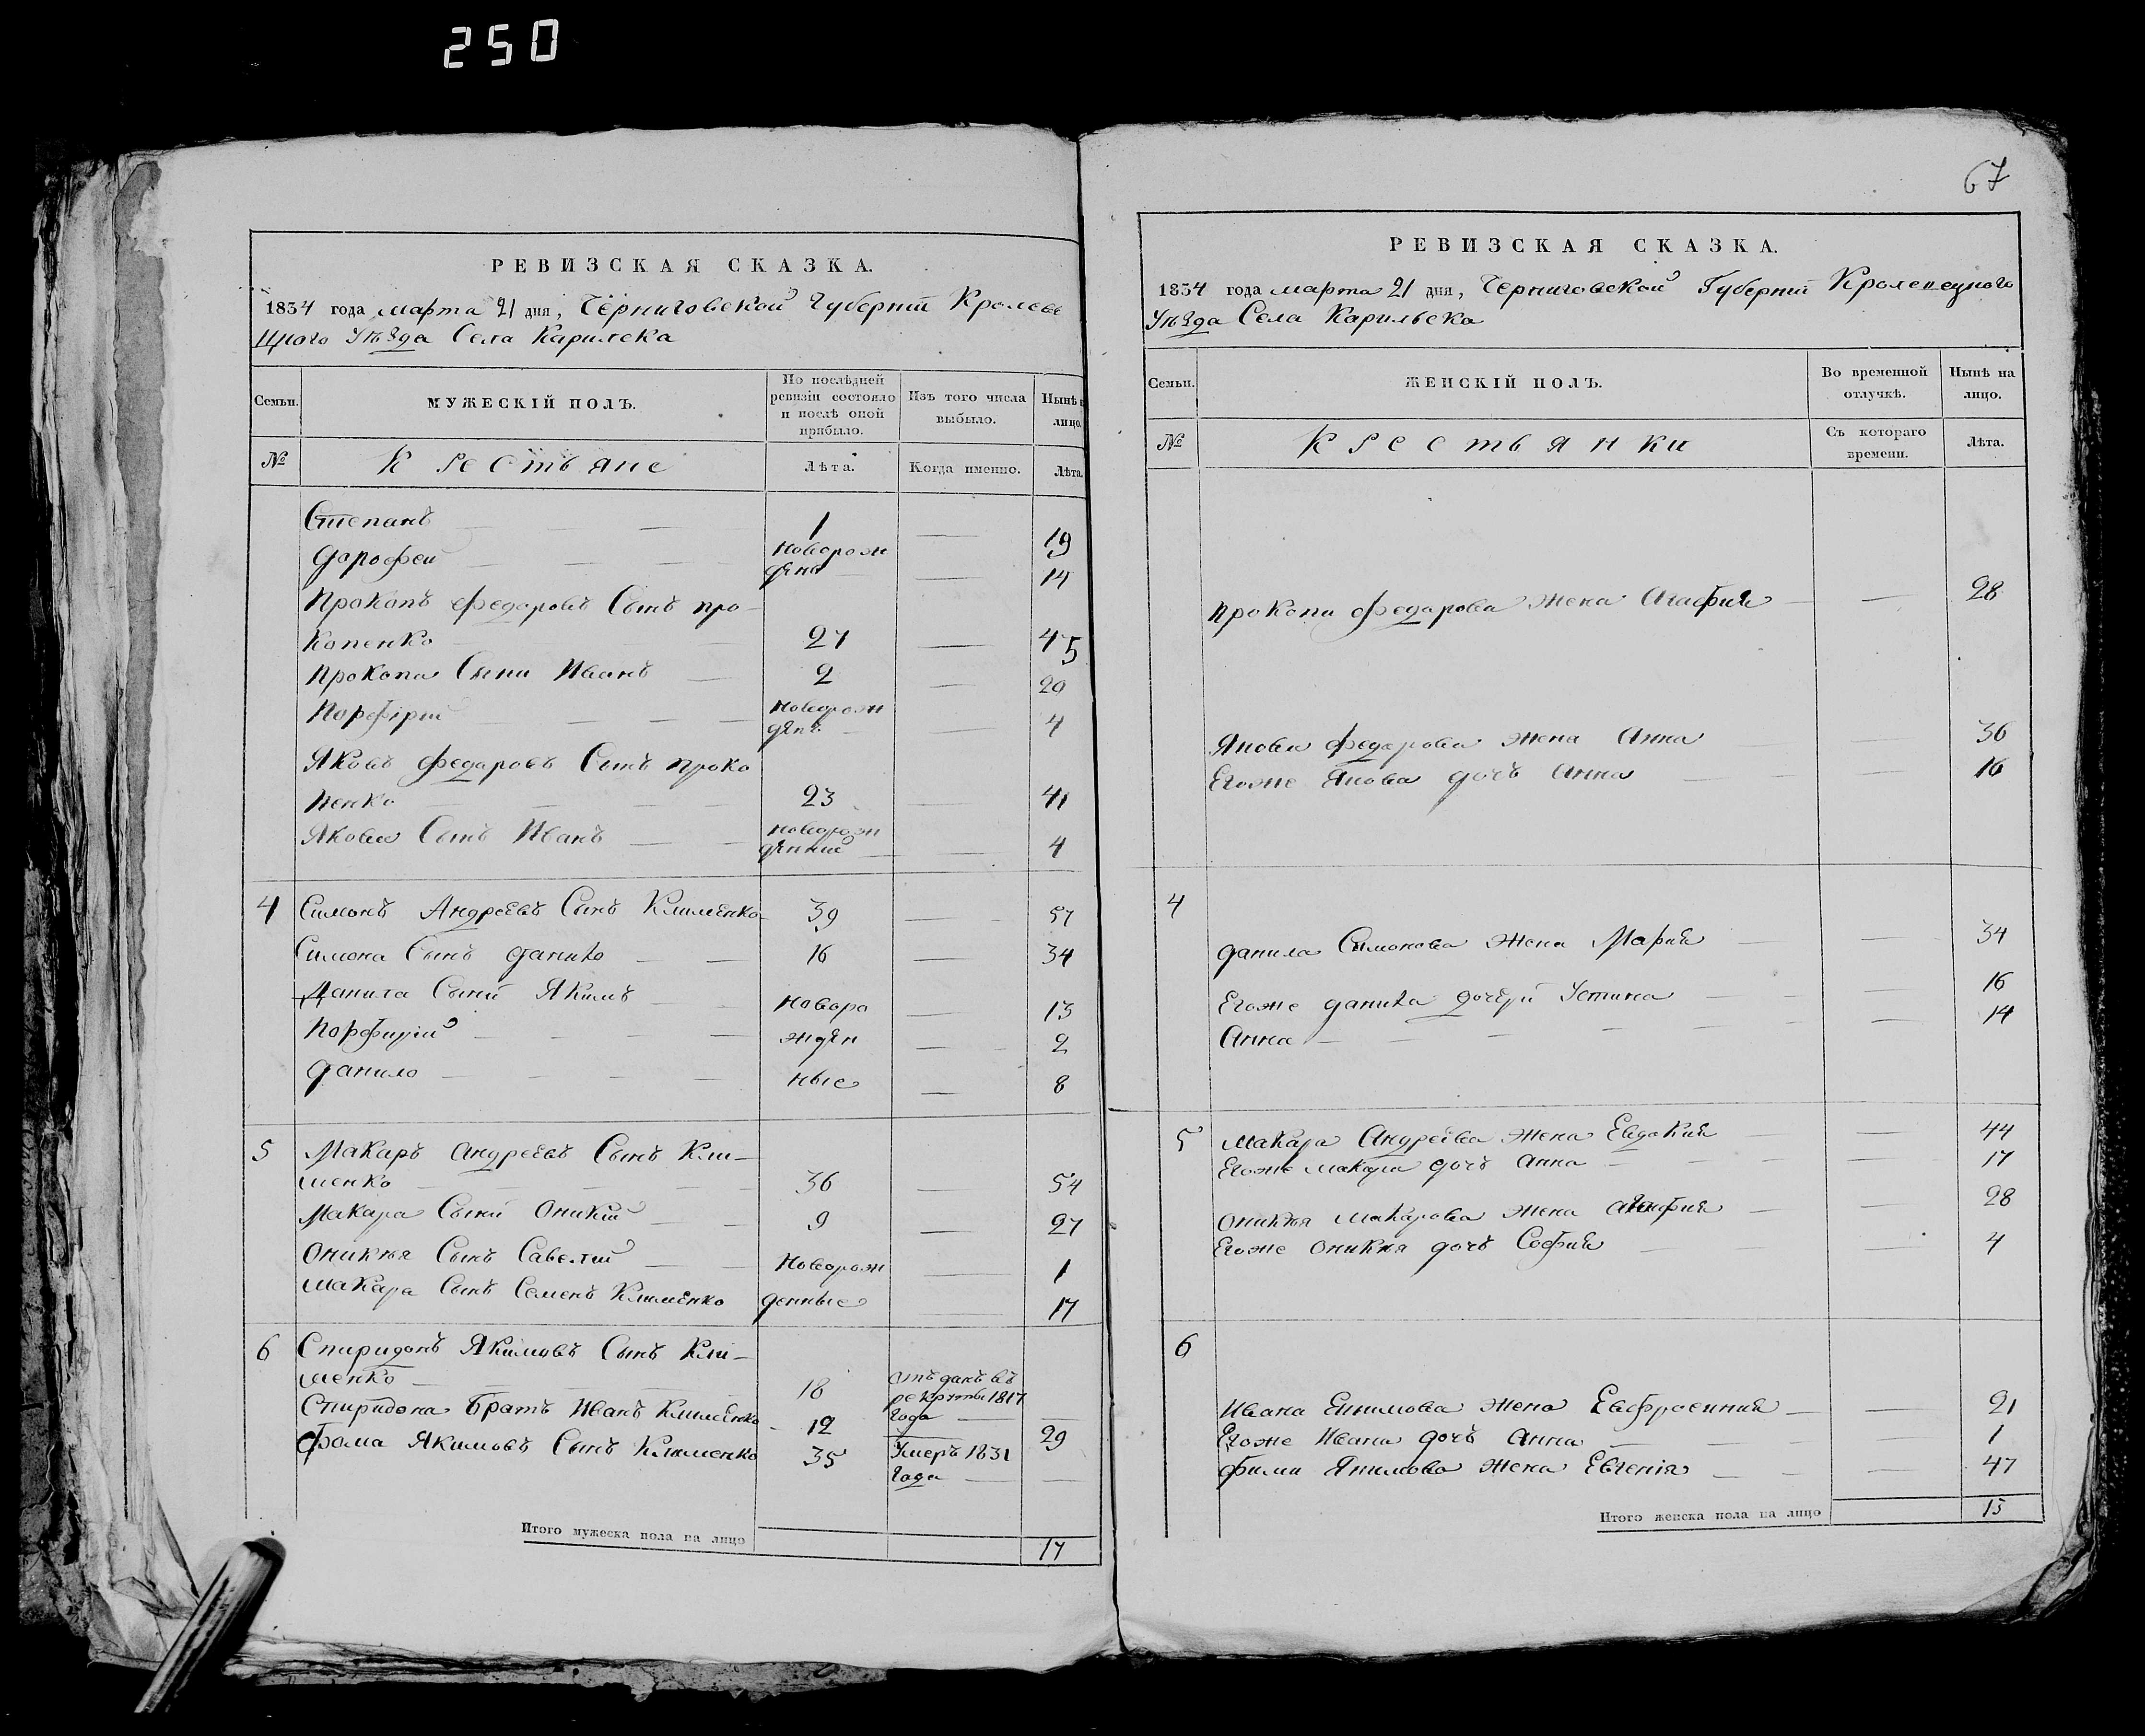 250
67
РЕВИЗСКАЯ СКАЗКА.
1834 года марта 21 дня, Черниговской Губернїи Кролеве
Цкого Уѣзда Села Карилска
Семьи.
МУЖЕСКІЙ ПОЛЪ.
По послѣдней ревизіи состояло и послѣ оной прибыло.
Изъ того числа выбыло.
Нынѣ н лицо.
№
Крестьяне
Лѣта.
Когда именно.
Лѣта.
Степанъ — — 1 — 19
Дорофеи — — — новорож — 14
дена
Прокопъ Федаровъ Сынъ про-
копенко 27 — 45
Прокопа Сыни Иванъ — 2 — 20
Порфірїй — — — новорож — 4
дена
Яковъ Федаровъ Сынъ проко
пенко — — — 23 — 41
Якова Сынъ Иванъ — — новорож — 4
денний
4 Симонъ Андреевъ Сынъ Клименко 39 — 57
Симона Сынъ данило — — 16 — 34
Данила Сыни Якимъ — — новоро — 13
Порфирїй — — — жден — 2
данило — — — — ные — 8
5 Макаръ Андреевъ Сынъ Кли-
менко — — — — 36 — 54
Макара Сыни Оникїй — — 9 — 27
Оникѣя Сынъ Савелїй — — новорож — 1
Макара Сынъ Семенъ Клименко денные — 17
6 Спиридонъ Якимовъ Сынъ Кли-
менко — — 18 отъданъ въ
рекруты 1817
года —
Спиридона Братъ Иванъ Клименко 12 — 29
Фома Якимовъ Сынъ Клименко 35 Умеръ 1831
года — —
Итого мужеска пола на лицо 17
РЕВИЗСКАЯ СКАЗКА.
1834 года марта 21 дня, Черниговской Губернїи Кролевецкого
Уѣзда Села Карильска
Семьи.
ЖЕНСКІЙ ПОЛЪ.
Во временной отлучкѣ.
Нынѣ на лицо.
№
Крестьянки
Съ котораго времени.
Лѣта.
Прокопа Федарова жена Агафия — — 28
Якова Федорова жена Анна — 36
Егоже Якова дочъ Анна — — 16
4
данила Симонова жена Мария — — 34
Егоже данила дочери Устина — — 16
Анна — — — — — 14
5 Макара Андреева жена Евдокия — — 44
Егоже макара дочъ Анна — — — 17
Оникѣя Макарова жена Агафия — — 28
Егоже Оникѣя дочъ София — — 4
6
Ивана Екимова жена Евфросиния — — 21
Егоже Ивана дочъ Анна — — — 1
Фоми Якимова жена Евгенїя — — — 47
Итого женска пола на лицо 15